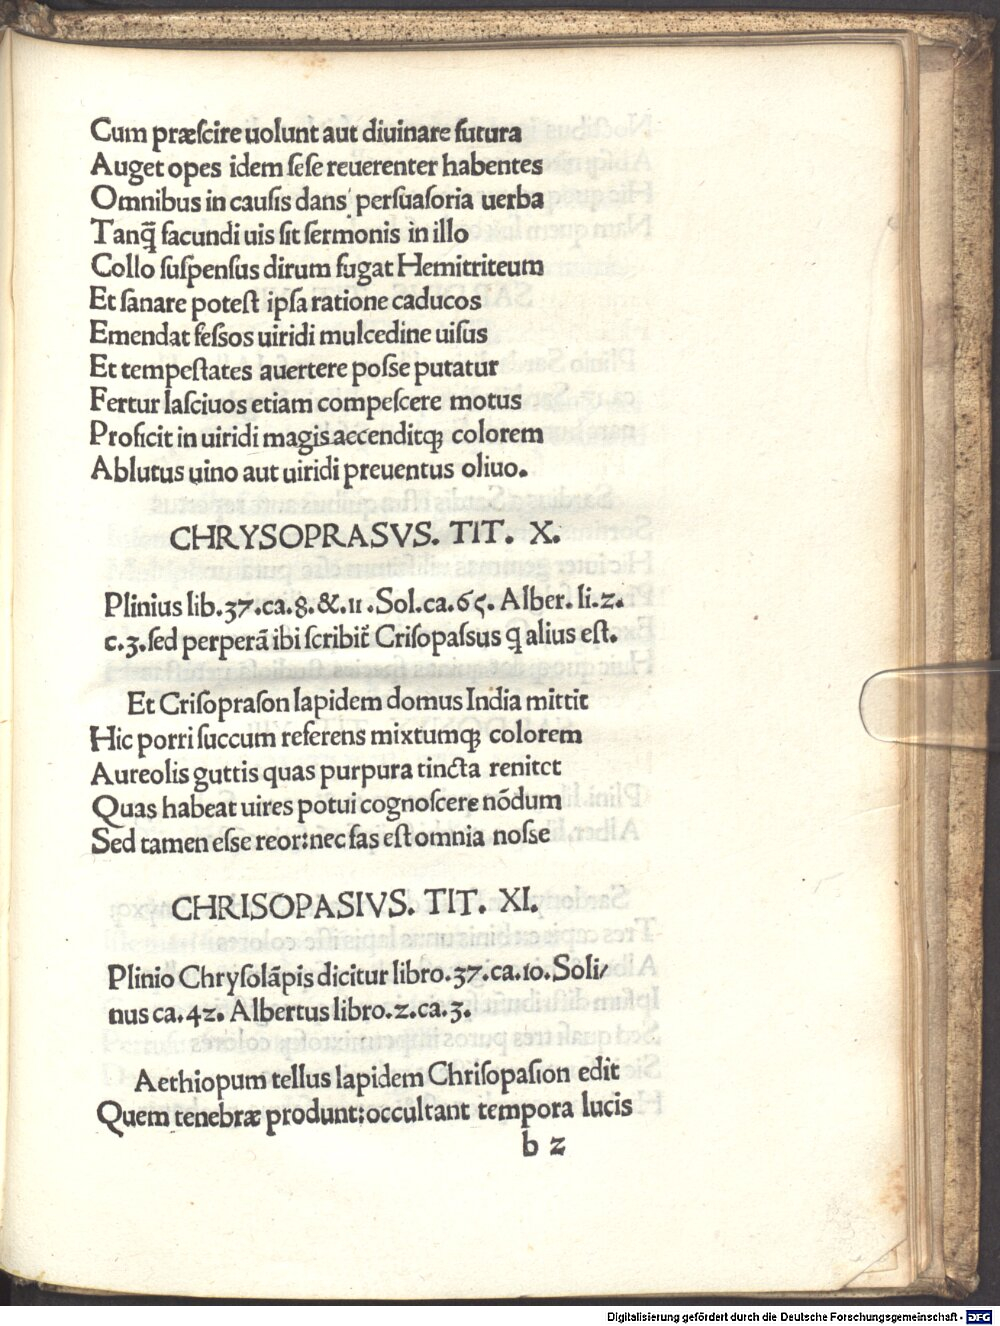 Cum præſcire uolunt aut diuinare futura
Auget opes idem ſeſe reuerenter habentes
Omnibus in cauſis dans perſuaſoria uerba
Tanq̃ facundi uis ſit ſermonis in illo
Collo ſuſpenſus dirum fugat Hemitriteum
Et ſanare poteſt ipſa ratione caducos
Emendat feſſos uiridi mulcedine uiſus
Et tempeſtates auertere poſſe putatur
Fertur laſciuos etiam compeſcere motus
Proficit in uiridi magis accenditqꝫ colorem
Ablutus uino aut uiridi preuentus oliuo.
CHRYSOPRASVS. TIT. X.
Plinius lib.37.ca.8.&.11.Sol.ca.65. Alber. li.2.
c.3.ſed perperã ibi ſcribit̃ Criſopaſſus q̃ alius eſt.
Et Criſopraſon lapidem domus India mittit
Hic porri ſuccum referens mixtumqꝫ colorem
Aureolis guttis quas purpura tincta renitet
Quas habeat uires potui cognoſcere nõdum
Sed tamen eſſe reor:nec fas eſt omnia noſſe
CHRISOPASIVS. TIT. XI.
Plinio Chryſolãpis dicitur libro.37.ca.10.Soli/
nus ca.42. Albertus libro.2.ca.3.
Aethiopum tellus lapidem Chriſopaſion edit
Quem tenebræ produnt:occultant tempora lucis
b 2
Digitalisierung gefördert durch die Deutsche Forschungsgemeinschaft - DFG